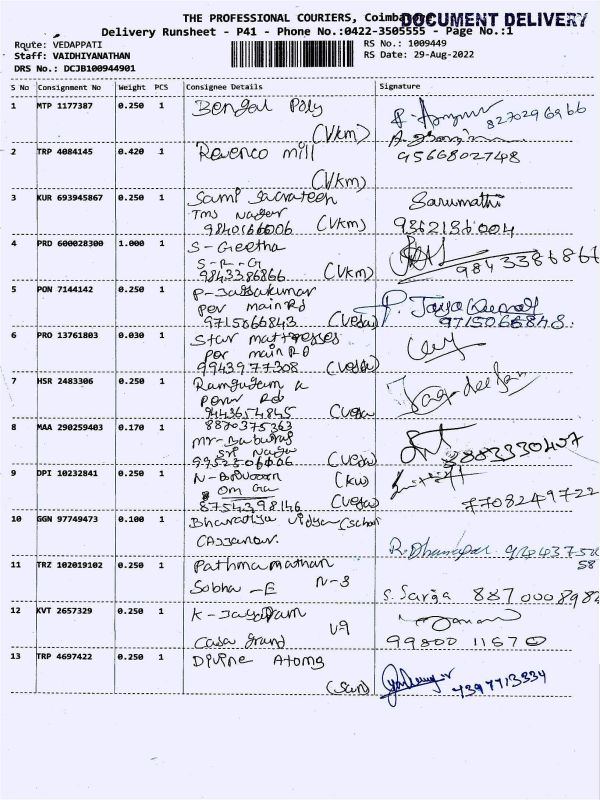 THE PROFESSIONAL COURIERS, Coimbatore
DOCUMENT DELIVERY
Delivery Runsheet - P41 - Phone No.:0422-3505555 - Page No.:1
Route: VEDAPPATI
RS No.: 1009449
Staff: VAIDHIYANATHAN
RS Date: 29-Aug-2022
DRS No.: DCJB100944901
S No Consignment No Weight PCS Consignee Details Signature
1 MTP 1177387 0.250 1 Bengal Poly
8270296966
(Vkm)
2 TRP 4084145 0.420 1 Revenco mill 9566802748
(Vkm)
3 KUR 693945867 0.250 1 Sarumathi
Tms Nagar
9840166006 (Vkm) 9362136004
4 PRD 600028300 1.000 1 S-Geetha
9843386866 (Vkm) 9843386866
5 PON 7144142 0.250 1 P-Jayakumar P. Jayakumar
per main Rd
9715066843 9715066848
6 PRO 13761803 0.030 1 Star mattresses
per main RD
9943977308
7 HSR 2483306 0.250 1 Jagadeesan
9443654845
8 MAA 290259403 0.170 1 8870375363
9952506606
9 DPI 10232841 0.250 1
Om Ga
8754398146 7708249722
10 GGN 97749473 0.100 1 Bharathiya Vidya (school
R. Dhanapal
58
11 TRZ 102019102 0.250 1 Pathmanathan
Sobha - E N-3 S. Sarga 8870008982
12 KVT 2657329 0.250 1 K-Jayaram
Casa grand V9 9980011670
13 TRP 4697422 0.250 1 Divine Atoms
(San) 7397713334